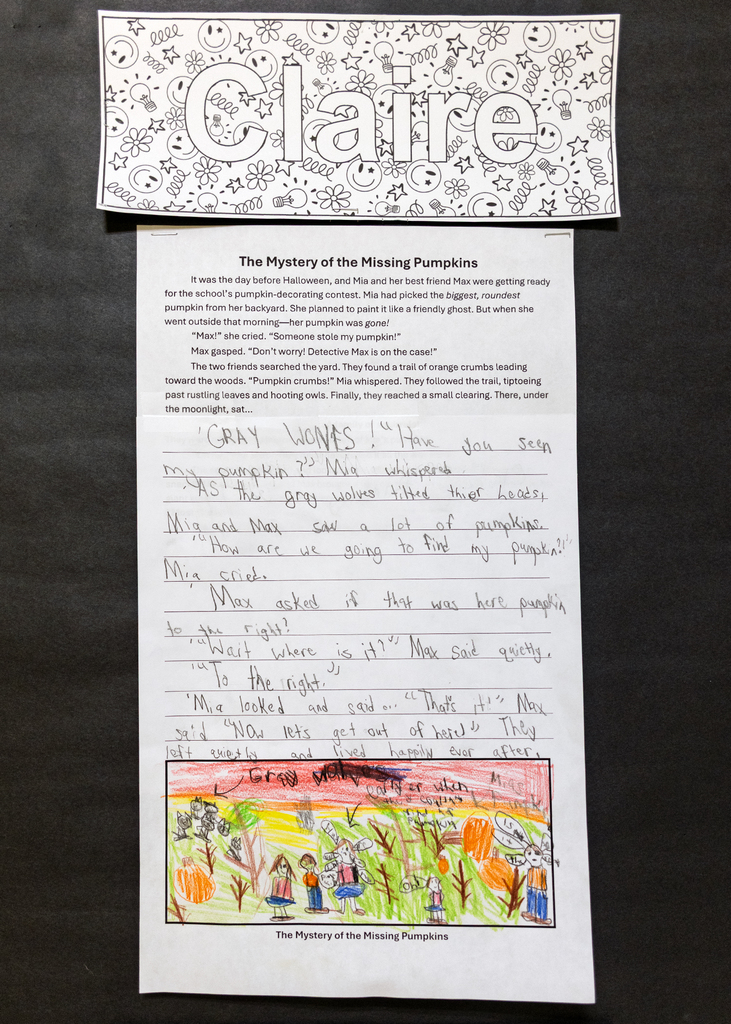 Claire
The Mystery of the Missing Pumpkins
It was the day before Halloween, and Mia and her best friend Max were getting ready
for the school's pumpkin-decorating contest. Mia had picked the biggest, roundest
pumpkin from her backyard. She planned to paint it like a friendly ghost. But when she
went outside that morning—her pumpkin was gone!
"Max!" she cried. "Someone stole my pumpkin!"
Max gasped. "Don't worry! Detective Max is on the case!"
The two friends searched the yard. They found a trail of orange crumbs leading
toward the woods. "Pumpkin crumbs!" Mia whispered. They followed the trail, tiptoeing
past rustling leaves and hooting owls. Finally, they reached a small clearing. There, under
the moonlight, sat...
'GRAY ! "Have you seen
my pumpkin?" Mia whispered.
'AS' the gray wolves tilted thier heads,
Mia and Max saw a lot of pumpkins.
'"How are we going to find my pumpkin?!"
Mia cried.
'Max asked if that was here pumpkin
to the right?
'"Wait where is it?" Max said quietly.
'"To the right."
'Mia looked and said... "That's it!" Max
said "Now let's get out of here!" They
left quietly and lived happily ever after.
Gray wolves
earlier when
pumpkin
Mias
Oh!
The Mystery of the Missing Pumpkins